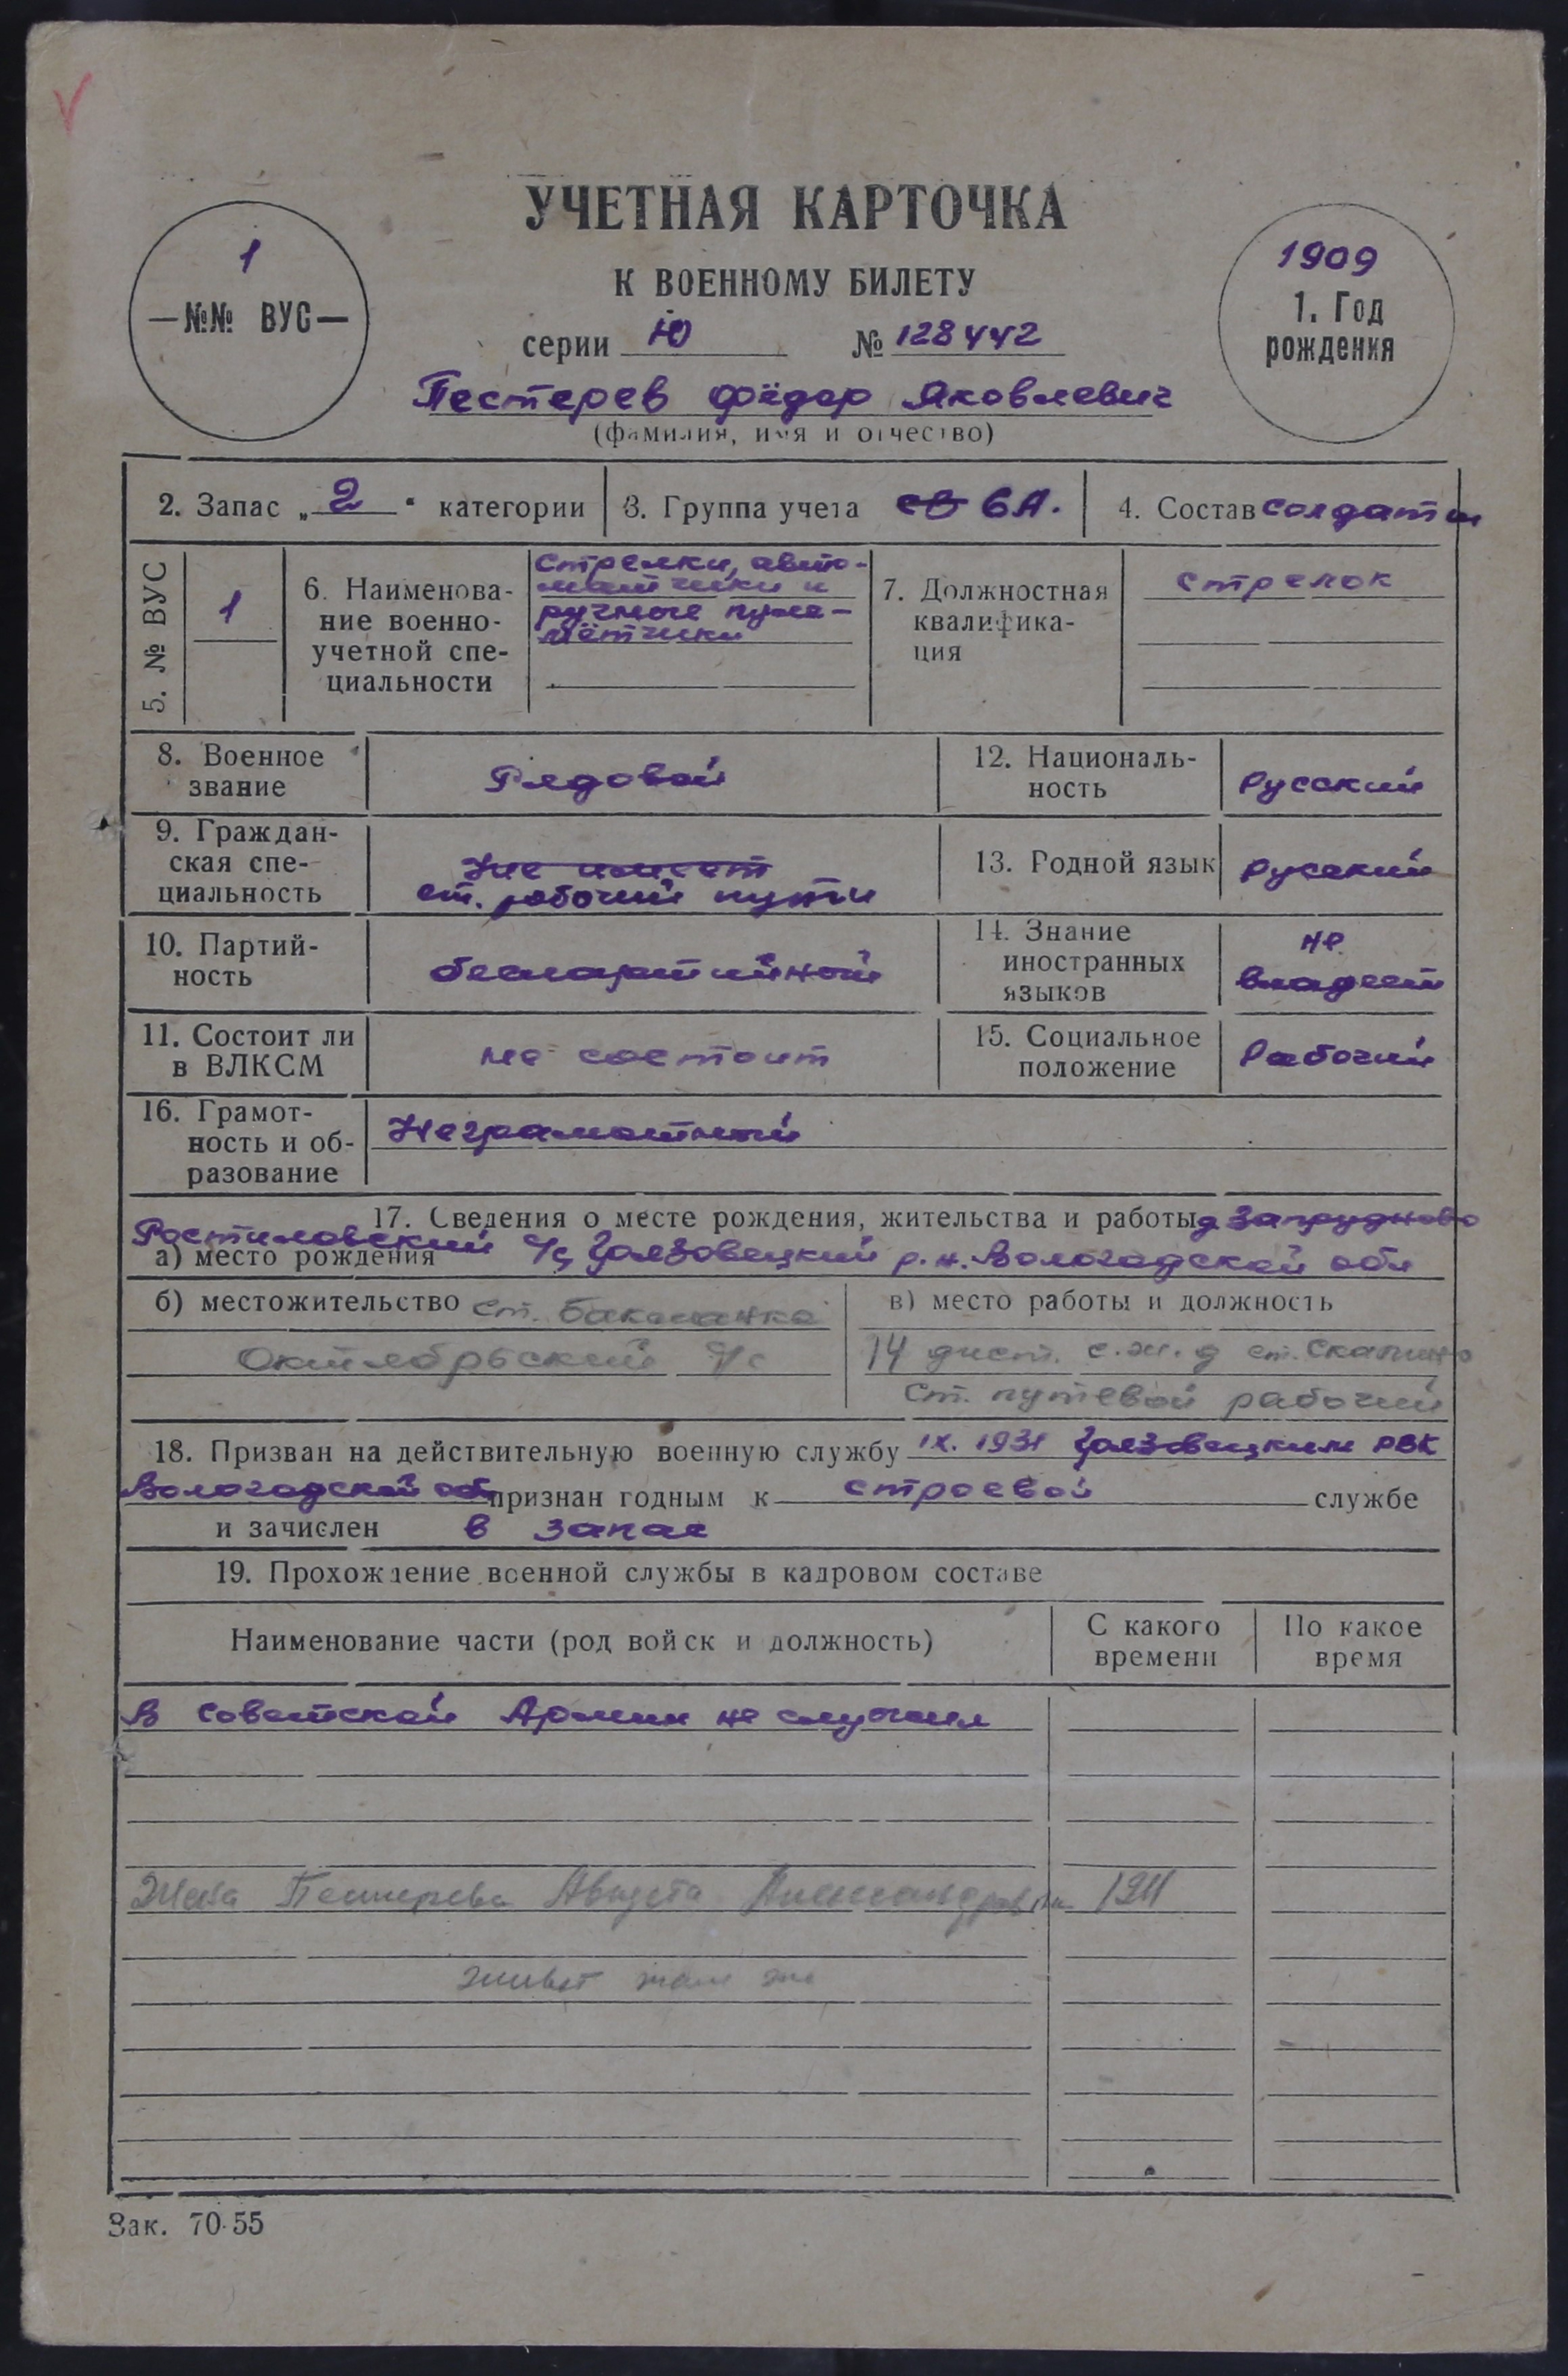 УЧЕТНАЯ КАРТОЧКА
К ВОЕННОМУ БИЛЕТУ
1
—№№ ВУС—
серии Ю № 128442
1909
1. Год
рождения
Пестерев Фёдор Яковлевич
(фамилия, имя и отчество)
2. Запас „2“ категории
3. Группа учета св 6А.
4. Состав солдаты
5. № ВУС
1
6. Наименова-
ние военно-
учетной спе-
циальности
стрелки, авто-
матчики и
ручные пуле-
мётчики
7. Должностная
квалифика-
ция
стрелок
8. Военное
звание
Рядовой
12. Националь-
ность
Русский
9. Граждан-
ская спе-
циальность
Не имеет
ст. рабочий пути
13. Родной язык
Русский
10. Партий-
ность
беспартийный
14. Знание
иностранных
языков
не
владеет
11. Состоит ли
в ВЛКСМ
не состоит
15. Социальное
положение
Рабочий
16. Грамот-
ность и об-
разование
Неграмотный
17. Сведения о месте рождения, жительства и работы д Запрудново
Ростиловский
а) место рождения с/с Грязовецкий р.н. Вологодской обл
б) местожительство ст. Бакланка
Октябрьский с/с
в) место работы и должность
14 дист. с.ж.д ст. Скалино
ст. путевой рабочий
18. Призван на действительную военную службу IX. 1931 Грязовецким РВК
Вологодской обл признан годным к строевой службе
и зачислен в запас
19. Прохождение военной службы в кадровом составе
Наименование части (род войск и должность)
С какого
времени
По какое
время
В Советской Армии не служил
Жена Пестерева Августа Александровна 1911
живет там же
Зак. 70-55